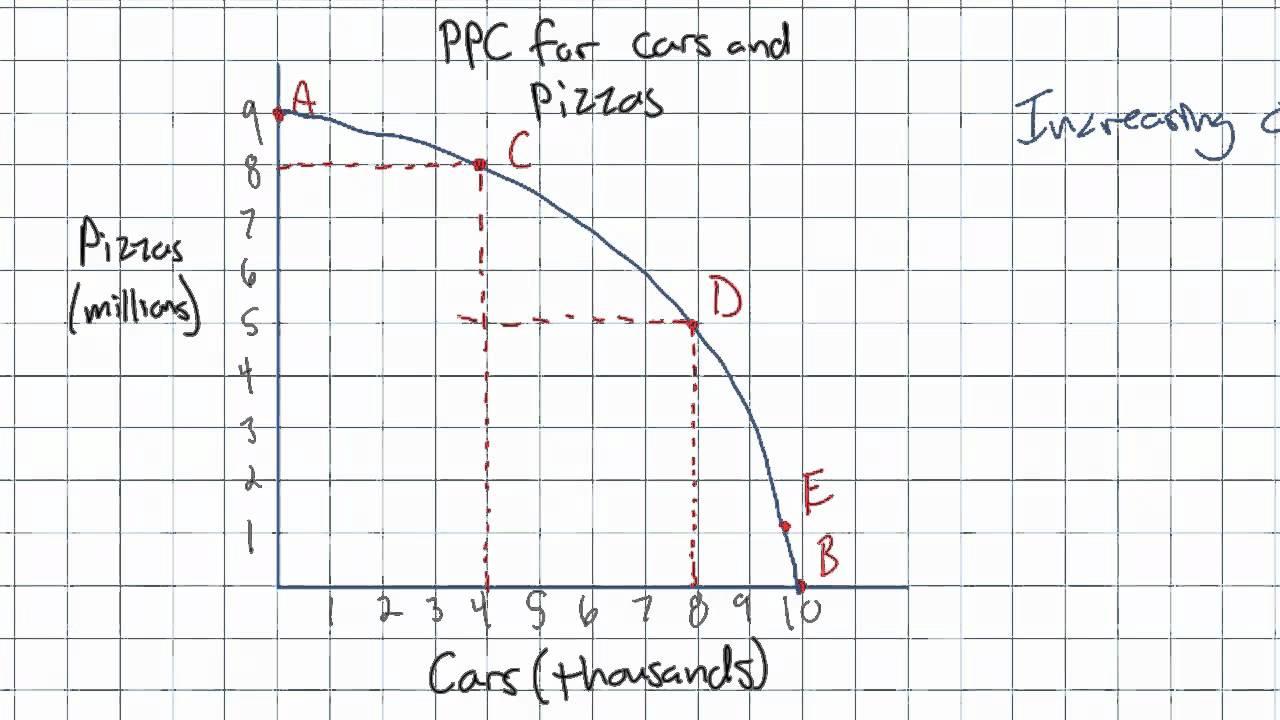 PPC for cars and
Pizzas
Increasing
A
9
C
8
7
Pizzas
(millions)
6
D
5
4
3
2
E
1
B
1 2 3 4 5 6 7 8 9 10
Cars (thousands)